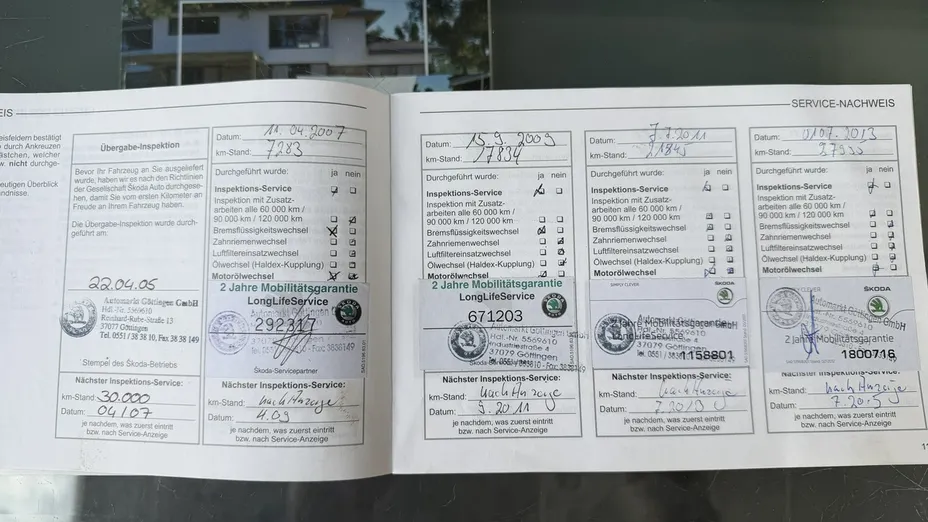 EIS
eisfeldern bestätigt
e durch Ankreuzen
ästchen, welcher
w. nicht durchge-
eutigen Überblick
ndnisse.
Übergabe-Inspektion
Bevor Ihr Fahrzeug an Sie ausgeliefert
wurde, haben wir es nach den Richtlinien
der Gesellschaft Škoda Auto durchgese-
hen, damit Sie vom ersten Kilometer an
Freude an Ihrem Fahrzeug haben.
Die Übergabe-Inspektion wurde durch-
geführt am:
22.04.05
Automarkt Göttingen GmbH
Hdl.-Nr. 5569610
37077 Göttingen
Tel. 0551 / 38 38 10, Fax 38 38 149
Stempel des Škoda-Betriebs
Nächster Inspektions-Service:
km-Stand: 30.000
Datum: 04/07
je nachdem, was zuerst eintritt
bzw. nach Service-Anzeige
Datum: 11.04.2007
km-Stand: 7283
Durchgeführt wurde: ja nein
Inspektions-Service
Inspektion mit Zusatz-
arbeiten alle 60 000 km /
90 000 km / 120 000 km
Bremsflüssigkeitswechsel
Zahnriemenwechsel
Luftfiltereinsatzwechsel
Ölwechsel (Haldex-Kupplung)
Motorölwechsel
2 Jahre Mobilitätsgarantie
LongLifeService
292317
Škoda-Servicepartner
Nächster Inspektions-Service:
km-Stand: nach Anzeige
Datum: 4.09
je nachdem, was zuerst eintritt
bzw. nach Service-Anzeige
SERVICE-NACHWEIS
Datum: 15.9.2009
km-Stand: 17834
Durchgeführt wurde: ja nein
Inspektions-Service
Inspektion mit Zusatz-
arbeiten alle 60 000 km /
90 000 km / 120 000 km
Bremsflüssigkeitswechsel
Zahnriemenwechsel
Luftfiltereinsatzwechsel
Ölwechsel (Haldex-Kupplung)
Motorölwechsel
2 Jahre Mobilitätsgarantie
LongLifeService
671203
Automarkt Göttingen GmbH
Hdl.-Nr. 5569610
Industriestraße 4
37079 Göttingen
Nächster Inspektions-Service:
km-Stand: nach Anzeige
Datum: 9.2011
je nachdem, was zuerst eintritt
bzw. nach Service-Anzeige
Datum: 7.7.2011
km-Stand: 21845
Durchgeführt wurde: ja nein
Inspektions-Service
Inspektion mit Zusatz-
arbeiten alle 60 000 km /
90 000 km / 120 000 km
Bremsflüssigkeitswechsel
Zahnriemenwechsel
Luftfiltereinsatzwechsel
Ölwechsel (Haldex-Kupplung)
Motorölwechsel
SIMPLY CLEVER
ŠKODA
2 Jahre Mobilitätsgarantie
LongLifeService
37079 Göttingen
1158801
Nächster Inspektions-Service:
km-Stand: nach Anzeige
Datum:
je nachdem, was zuerst eintritt
bzw. nach Service-Anzeige
Datum: 01.07.2013
km-Stand:
Durchgeführt wurde: ja nein
Inspektions-Service
Inspektion mit Zusatz-
arbeiten alle 60 000 km /
90 000 km / 120 000 km
Bremsflüssigkeitswechsel
Zahnriemenwechsel
Luftfiltereinsatzwechsel
Ölwechsel (Haldex-Kupplung)
Motorölwechsel
SIMPLY CLEVER
ŠKODA
Automarkt Göttingen GmbH
Hdl.-Nr. 5569610
37079 Göttingen
2 Jahre Mobilitätsgarantie
1800716
Nächster Inspektions-Service:
km-Stand: nach Anzeige
Datum: 7.2015
je nachdem, was zuerst eintritt
bzw. nach Service-Anzeige